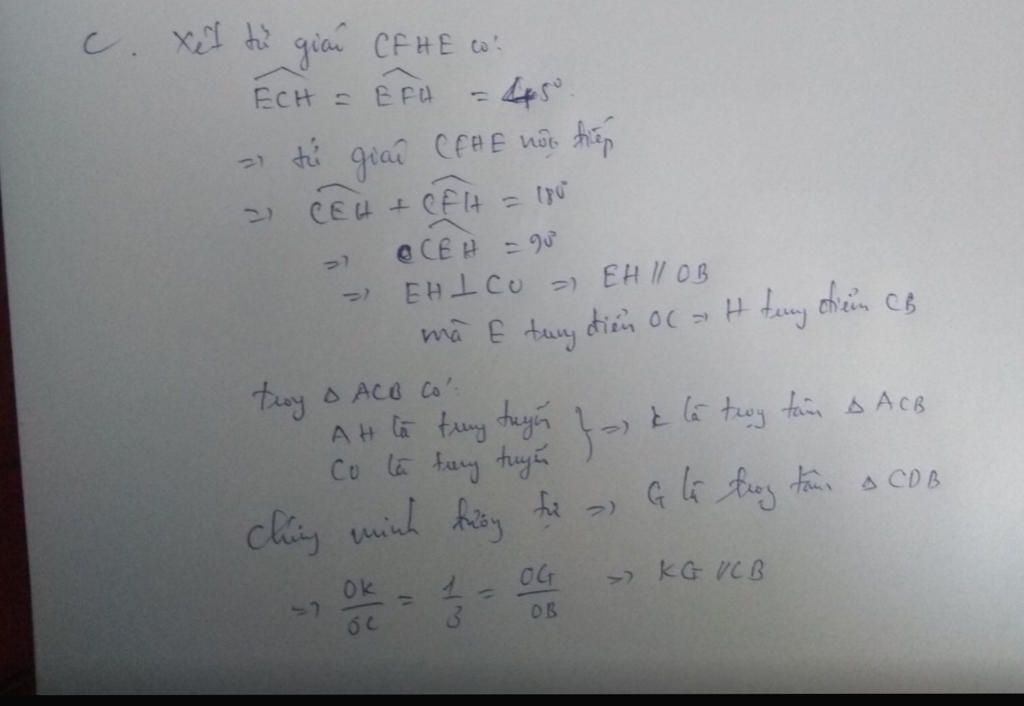 C. Xét tứ giác CFHE có:
ECH = EFH = 45°.
=> tứ giác CFHE nội tiếp
=> CEH + CFH = 180°
=> CEH = 90°
=> EH ⊥ CO => EH // OB
mà E trung điểm OC => H trung điểm CB
trong Δ ACB có:
AH là trung tuyến
CO là trung tuyến } => K là trọng tâm Δ ACB
Chứng minh tương tự => G là trọng tâm Δ CDB
=> OK/OC = 1/3 = OG/OB => KG // CB